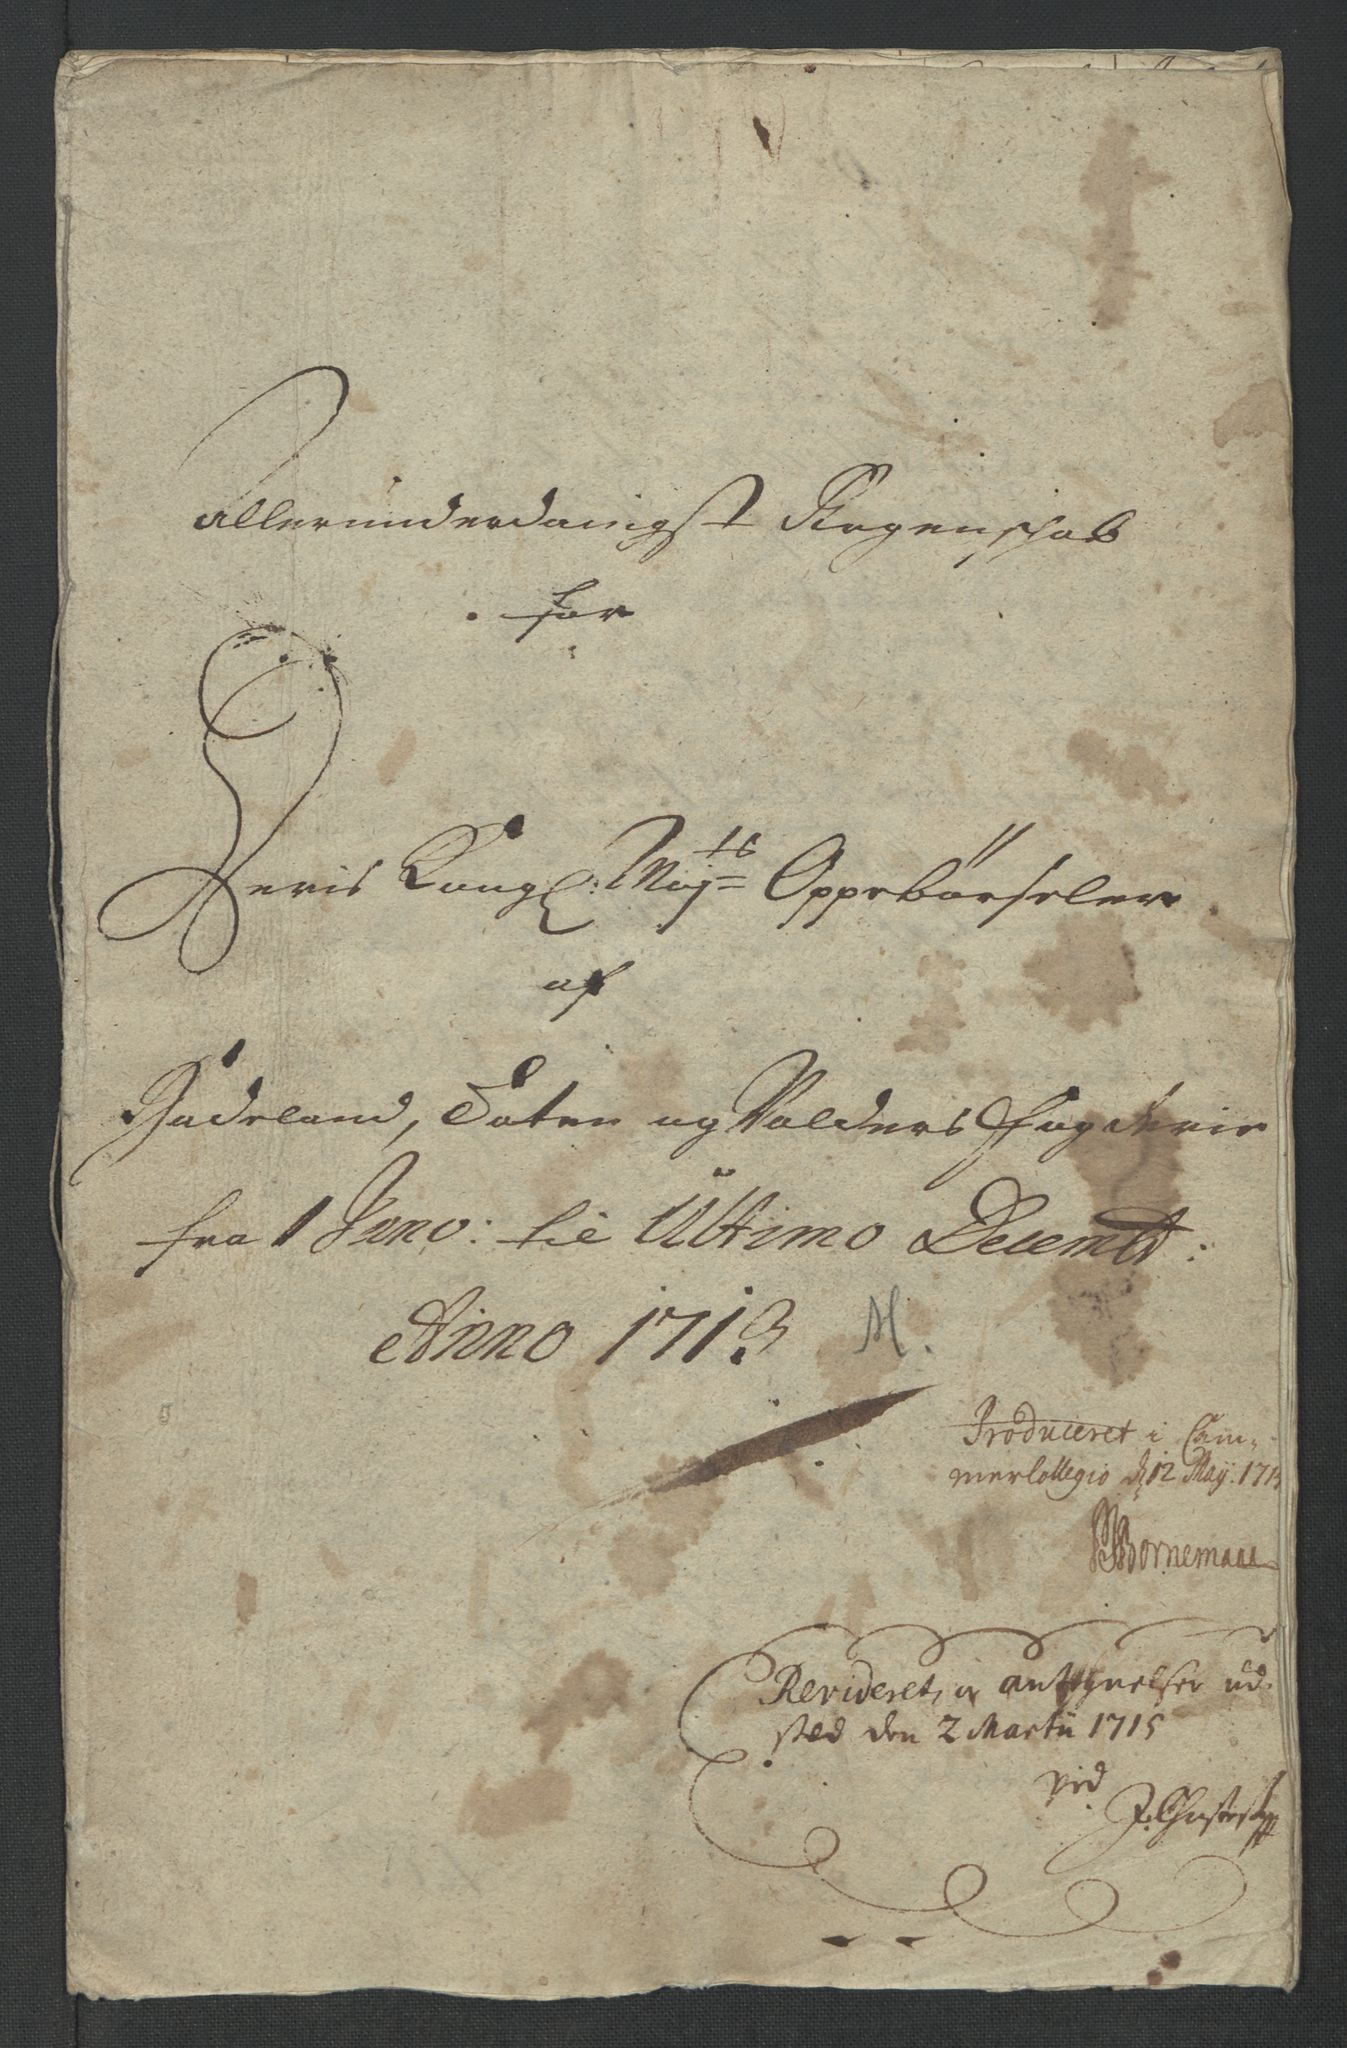 Allerunderdanigst Regenschab
for
Deris Kongl: Mayts Oppebörseler
af
Hadeland, Toten og Valders fogderie
fra 1 Jano: til Ultimo Decembr:
Anno 1713 M.
Produceret i Cam-
merCollegio d. 12 Maÿ.
Bornemann
Revideret, og antegnelser ud-
sted den 2 Martii 1715
ved